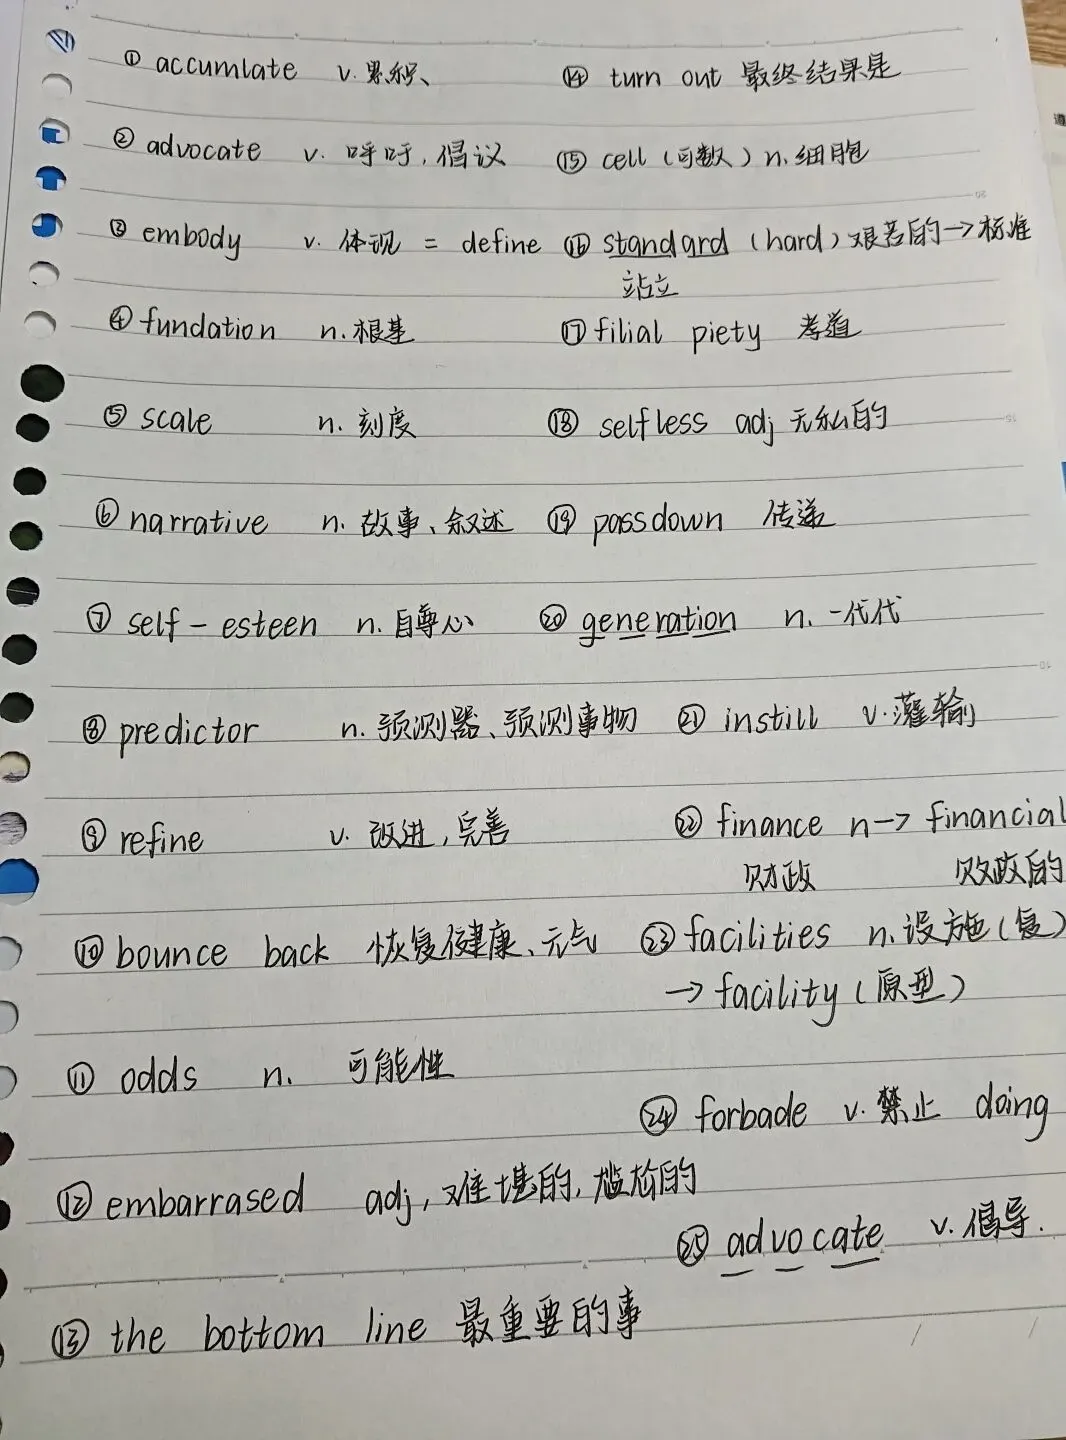 ① accumlate v. 累积、
② advocate v. 呼吁,倡议
③ embody v. 体现 = define
④ fundation n. 根基
⑤ scale n. 刻度
⑥ narrative n. 故事、叙述
⑦ self-esteen n. 自尊心
⑧ predictor n. 预测器、预测事物
⑨ refine v. 改进,完善
⑩ bounce back 恢复健康、元气
⑪ odds n. 可能性
⑫ embarrased adj, 难堪的,尴尬的
⑬ the bottom line 最重要的事
⑭ turn out 最终结果是
⑮ cell (可数) n. 细胞
⑯ standard (hard) 艰苦的→标准
站立
⑰ filial piety 孝道
⑱ selfless adj 无私的
⑲ passdown 传递
⑳ generation n. 一代代
㉑ instill v. 灌输
㉒ finance n→ financial
财政 财政的
㉓ facilities n. 设施(复)
→ facility (原型)
㉔ forbade v. 禁止 doing
㉕ advocate v. 倡导.